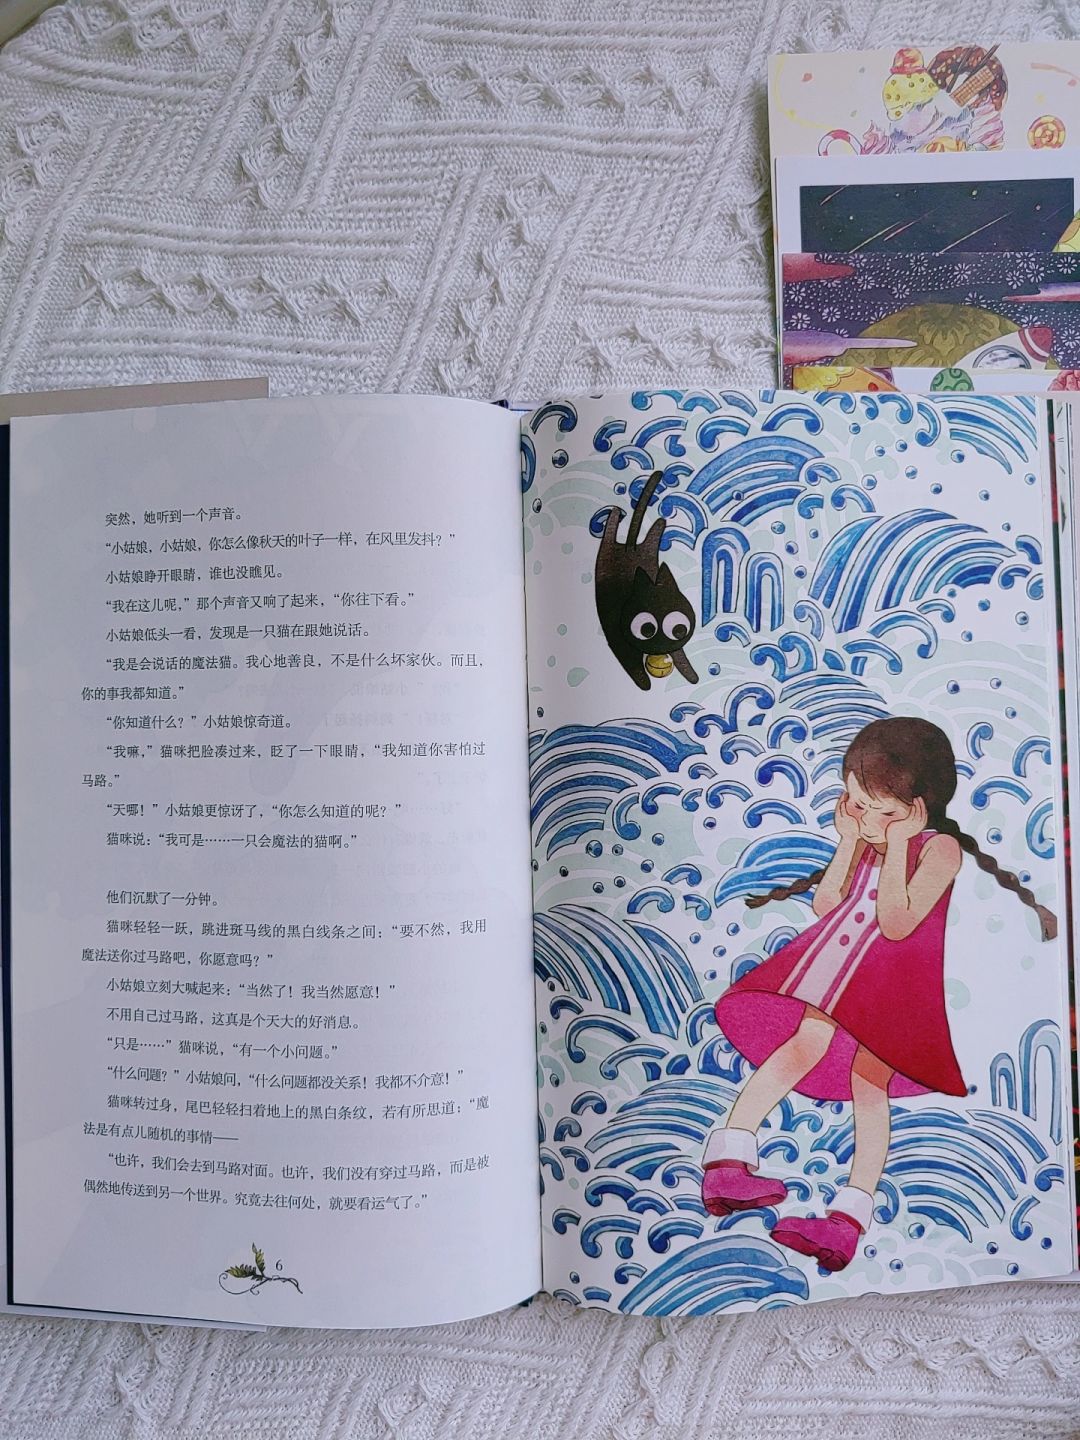 突然，她听到一个声音。
“小姑娘，小姑娘，你怎么像秋天的叶子一样，在风里发抖？”
小姑娘睁开眼睛，谁也没瞧见。
“我在这儿呢，”那个声音又响了起来，“你往下看。”
小姑娘低头一看，发现是一只猫在跟她说话。
“我是会说话的魔法猫。我心地善良，不是什么坏家伙。而且，
你的事我都知道。”
“你知道什么？”小姑娘惊奇道。
“我嘛，”猫咪把脸凑过来，眨了一下眼睛，“我知道你害怕过
马路。”
“天哪！”小姑娘更惊讶了，“你怎么知道的呢？”
猫咪说：“我可是……一只会魔法的猫啊。”
他们沉默了一分钟。
猫咪轻轻一跃，跳进斑马线的黑白线条之间：“要不然，我用
魔法送你过马路吧，你愿意吗？”
小姑娘立刻大喊起来：“当然了！我当然愿意！”
不用自己过马路，这真是个天大的好消息。
“只是……”猫咪说，“有一个小问题。”
“什么问题？”小姑娘问，“什么问题都没关系！我都不介意！”
猫咪转过身，尾巴轻轻扫着地上的黑白条纹，若有所思道：“魔
法是有点儿随机的事情——
“也许，我们会去到马路对面。也许，我们没有穿过马路，而是被
偶然地传送到另一个世界。究竟去往何处，就要看运气了。”
6